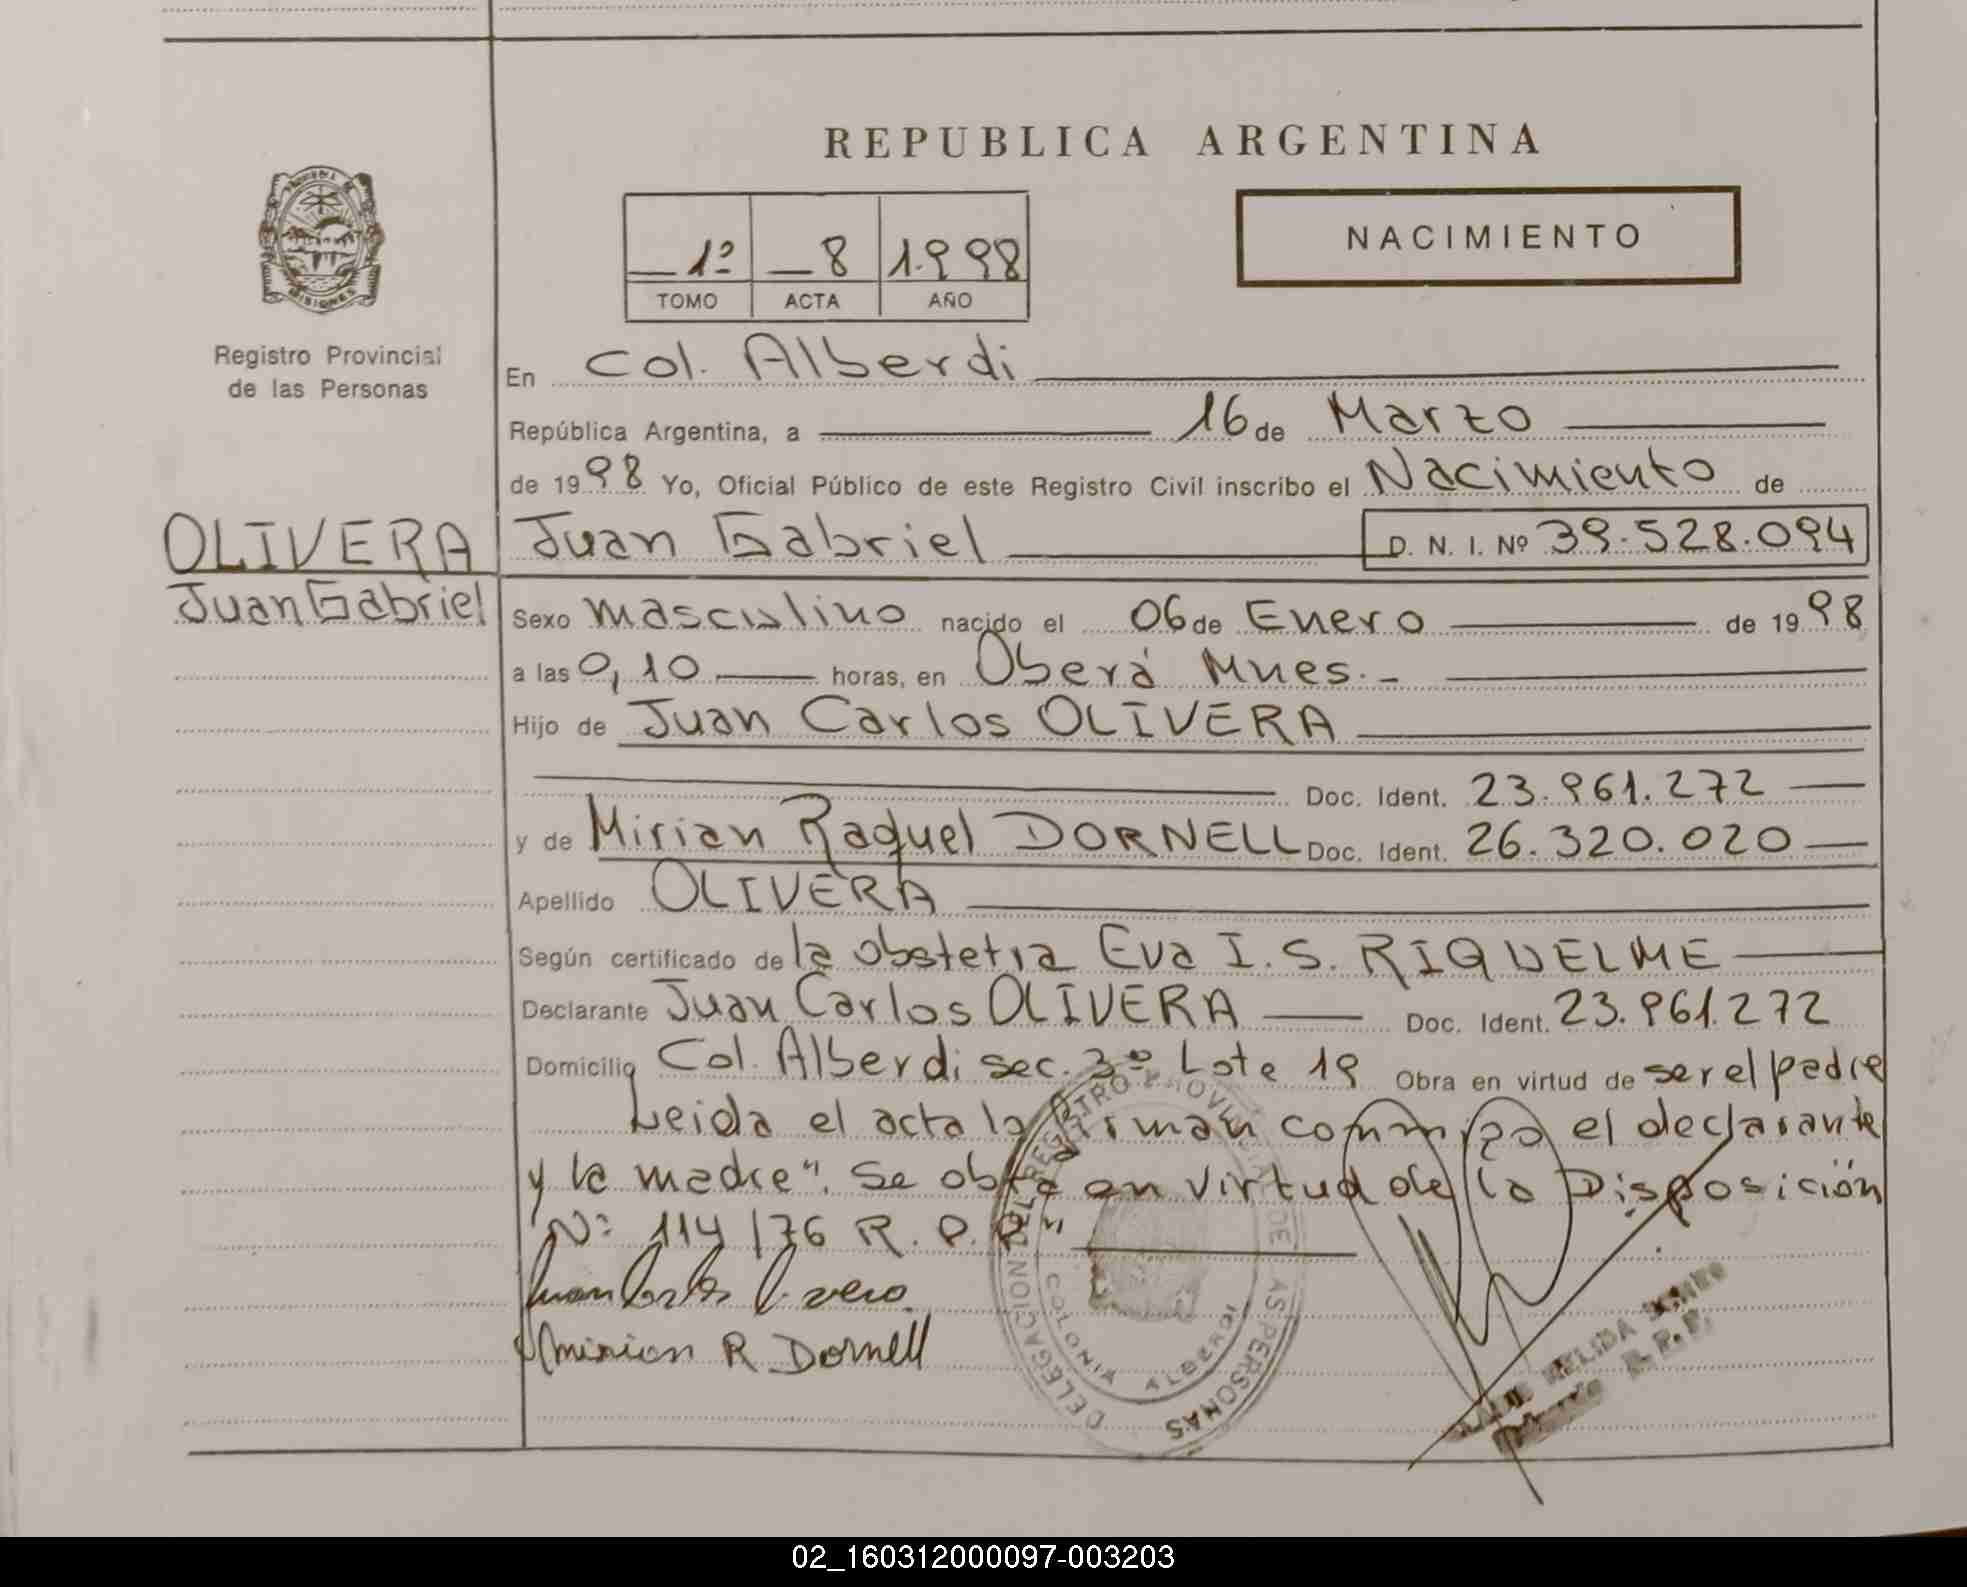 REPUBLICA ARGENTINA
1º 8 1.998
TOMO ACTA AÑO
NACIMIENTO
MISIONES
Registro Provincial
de las Personas
En Col. Alberdi
República Argentina, a 16 de Marzo
de 1998 Yo, Oficial Público de este Registro Civil inscribo el Nacimiento de
OLIVERA
Juan Gabriel
Juan Gabriel D. N. I. Nº 39.528.094
Sexo masculino nacido el 06 de Enero de 1998
a las 0,10 horas, en Oberá Mnes.-
Hijo de Juan Carlos OLIVERA
Doc. Ident. 23.961.272
y de Mirian Raquel DORNELL Doc. Ident. 26.320.020
Apellido OLIVERA
Según certificado de la obstetra Eva I. S. RIQUELME
Declarante Juan Carlos OLIVERA Doc. Ident. 23.961.272
Domicilio Col. Alberdi sec. 3º Lote 19 Obra en virtud de ser el padre
Leida el acta la firman conmigo el declarante
y la madre". Se obra en virtud de la Disposición
Nº 114/76 R. P. P."
Juan Carlos Olivera
Mirian R Dornell
DELEGACION DEL REGISTRO PROVINCIAL DE LAS PERSONAS
COLONIA ALBERDI
NELIDA
02_160312000097-003203